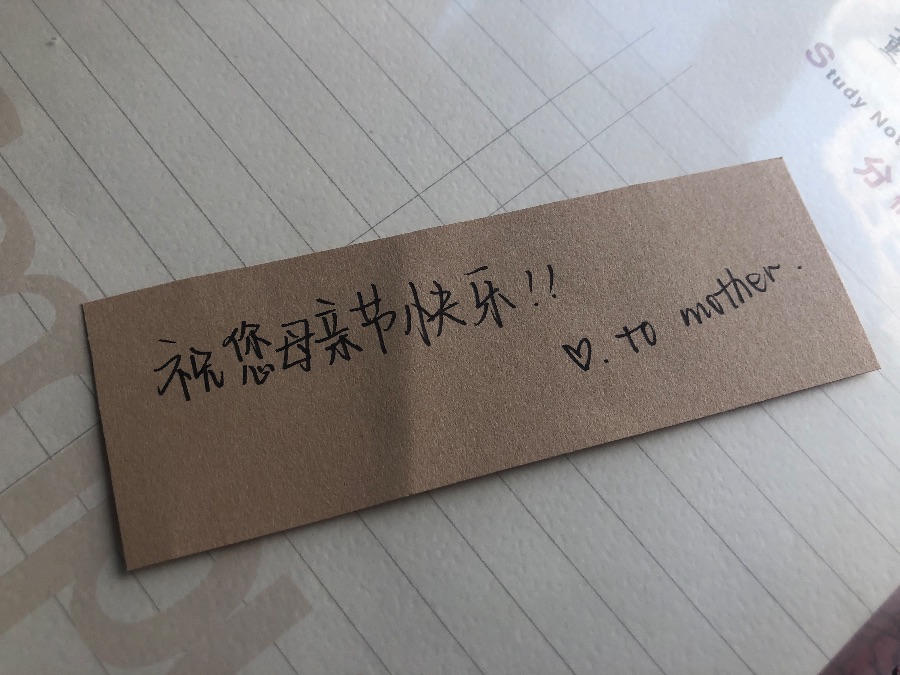 祝您母亲节快乐!!
♡. to mother.
Study Not
分